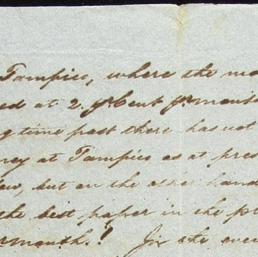 Tampico, where the mo
ed at 2. pr Cent pr month
g time past there has not
ney at Tampico as at pres
ew, but on the other hand
the best paper in the pl
month.! In the even